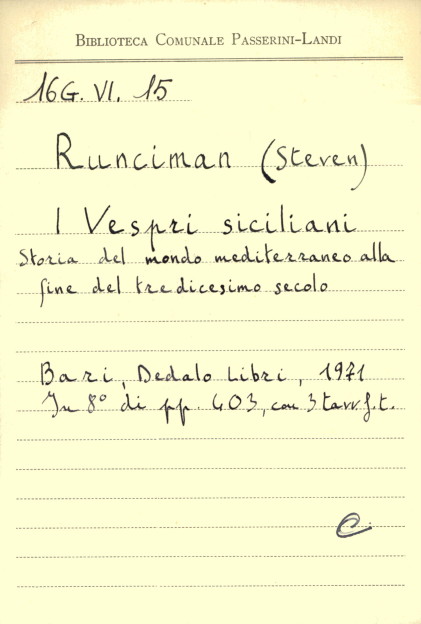 BIBLIOTECA COMUNALE PASSERINI-LANDI
16G. VI. 15
Runciman (Steven)
I Vespri siciliani
Storia del mondo mediterraneo alla
fine del tredicesimo secolo
Bari, Dedalo Libri, 1971
In 8° di pp. 403, con 3 tavv. f. t.
C